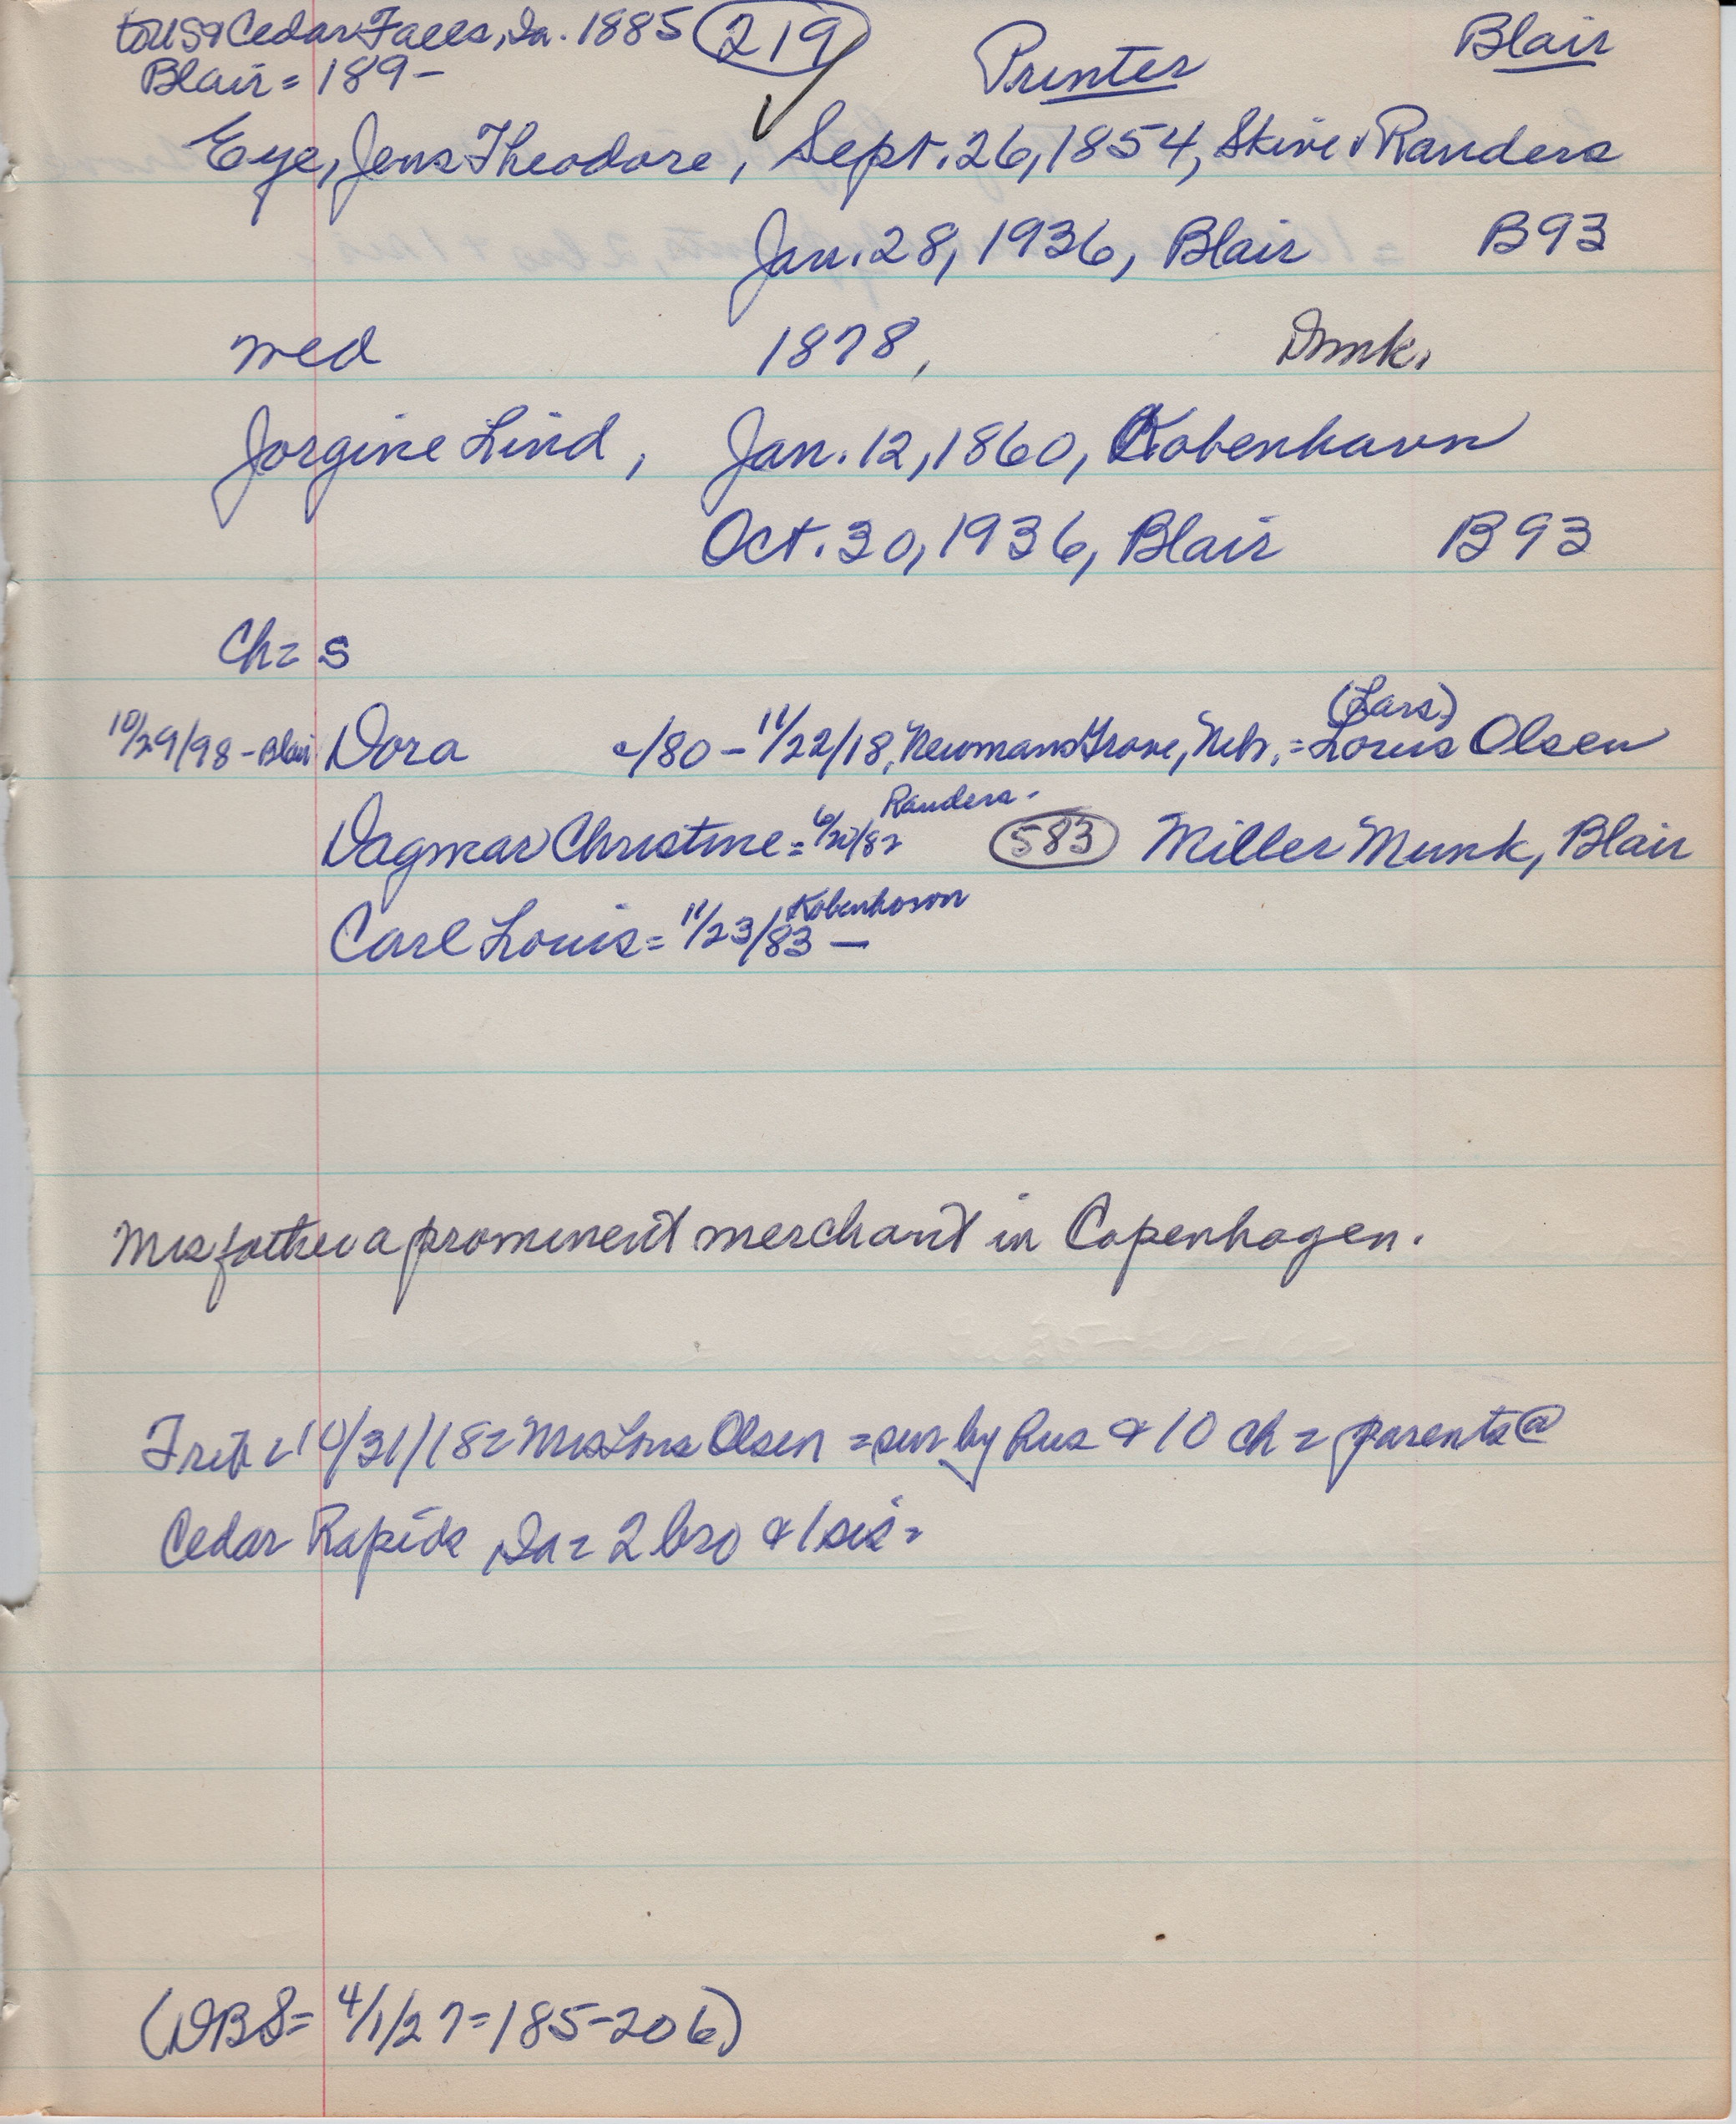 to USA Cedar Falls, Ia. 1885 219 Printer Blair
Blair = 189-
Eye, Jens Theodore, Sept. 26, 1854, Skive v Randers
Jan. 28, 1936, Blair B93
med 1878, Dmk.
Jorgine Lind, Jan. 12, 1860, Kobenhavn
Oct. 30, 1936, Blair B93
Ch = s
(Lars)
10/29/98 - Blair Dora -/80 - 11/22/18, Newmans Grove, Neb. = Louis Olsen
Randers.
Dagmar Christine = 583 Miller Munk, Blair
Kobenhavn
Carl Louis = 11/23/83 -
Mrs father a prominent merchant in Copenhagen.
10/31/18 = Mrs Olsen = sur by hus & 10 ch = parents @
Cedar Rapids, Ia = 2 bro & 1 sis =
(DBS = 4/1/27 = 185-206)